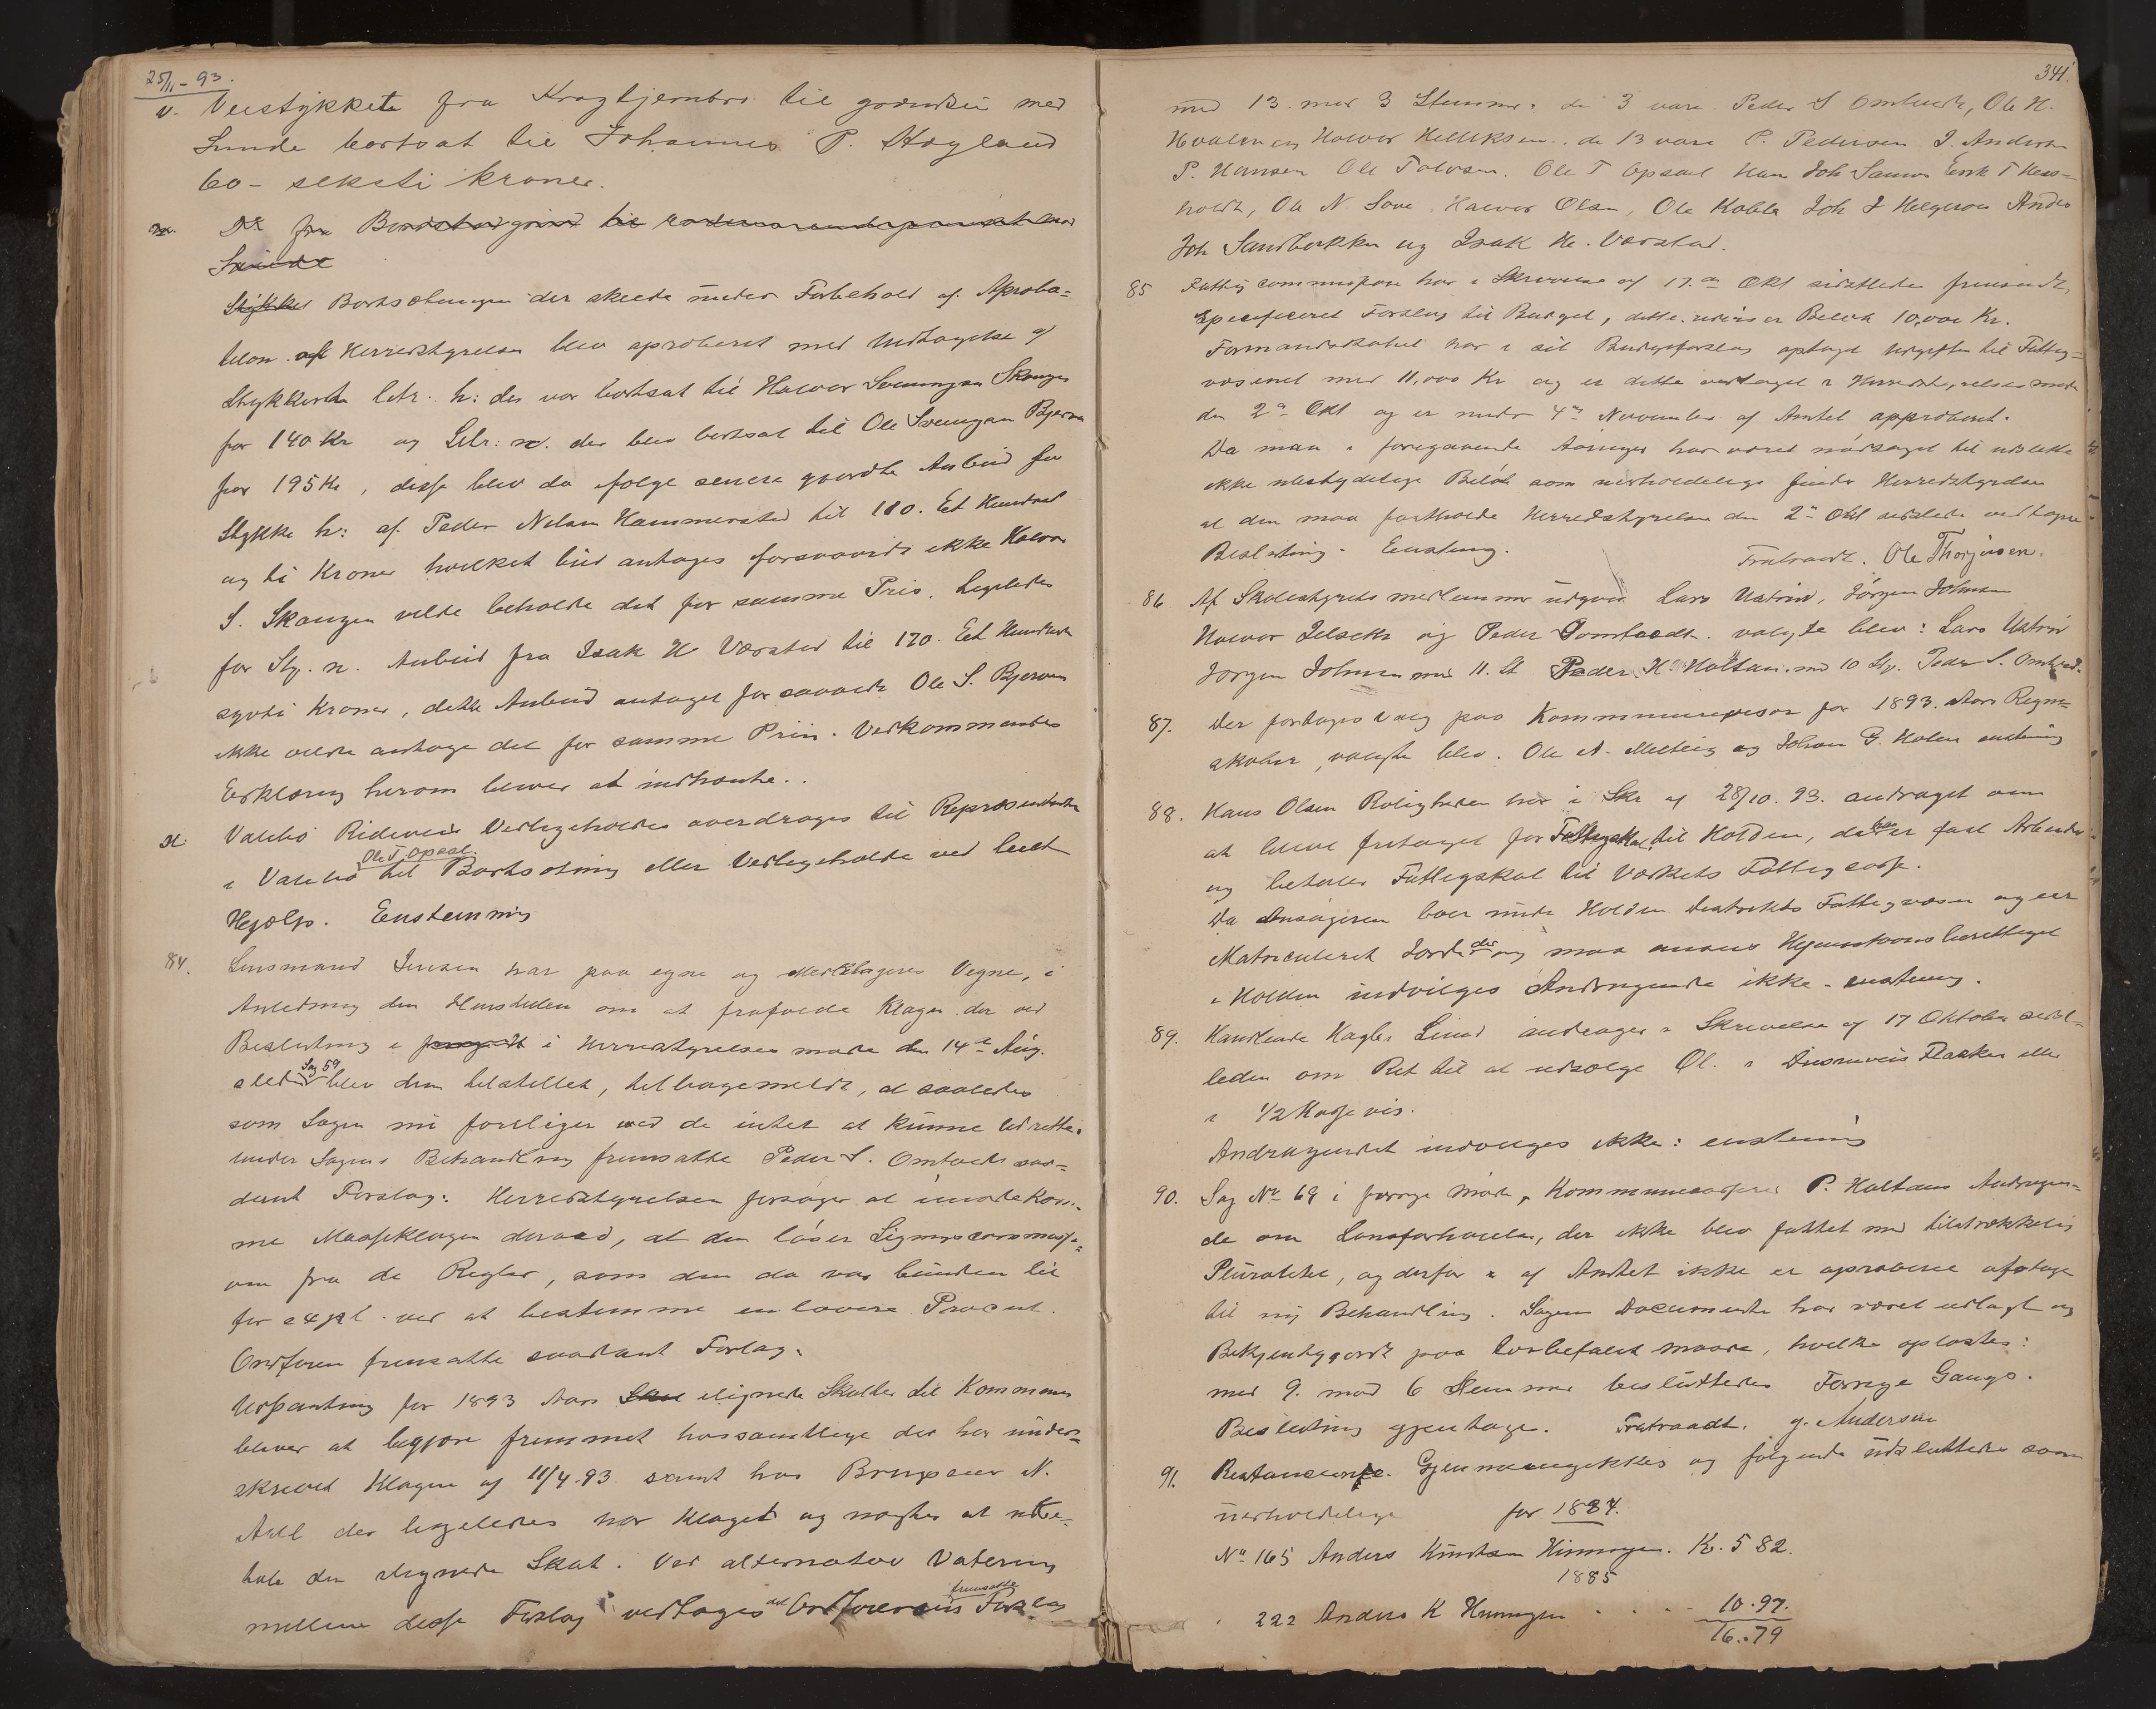 25/11 - 93.
v. Veistykket fra Kragbjernbro til grændsen med
Lunde bortsat til Johannes P. Høgland
60 - seksti kroner.
Do fra
Lunde
Stykket Bortsætningen der skeede under Forbehold af Aproba=
tion af Herredstyrelsen blev aproberet med Undtagelse af
Stykkerne litr. h: der var bortsat til Halvor Svenungsen Skougen
for 140 Kr og Litr: n. der blev bortsat til Ole Svenungsen Bjerva
for 195 Kr, disse blev da ifølge senere gjordte Anbud for
Stykke h: af Peder Nilsen Hammersted til 110. Et Hundred
og ti Kroner hvilket bud antages forsaavidt ikke Halvor
S. Skougen vilde beholde det for samme Pris. Ligeledes
for Sty. n. Anbud fra Isak H Værsted til 170. Et Hundrede
sytti Kroner, dette Anbud antaget forsaavidt Ole S. Bjerva
ikke vilde antage det for samme Priis. Vedkommendes
Erklæring herom bliver at indhente.
Valebø Rideveis Vedligeholdes overdrages til Repræsentanten
i Valebø Ole T. Opsal til Bortsætning eller Vedligeholde ved leiet
Hjælp. Eenstemmig
84. Lensmand Jensen har paa egne og Medklageres Vegne, i
Anledning den Henstillen om at frafalde Klagen der ved
Beslutning i Herredstyrelses møde den 14de Aug.
sletd Sag 59 blev dem tilstillet, tilbagemeldt, at saaledes
som Sagen nu foreliger ved de intet at kunne udrette.
under Sagens Behandling fremsatte Peder S. Omtvedt saa=
dant Forslag: Herredstyrelsen forsøger at imødekom=
me Masseklagen derved, at den løser Ligningscommissi=
onen fra de Regler, som den da var bunden til
for expl. ved at bestemme en lavere Procent.
Ordføren fremsatte saadant Forlag:
Udpantning for 1893 Aars ilignede Skatter til Kommunen
bliver at begjøre fremmet hos samtlige der har under=
skrevet Klagen af 11/4 93 samt hos Brugseier N.
Aall der ligeledes har klaget og nægtes at udbe=
tale den ilignede Skat. Ved alternativ Votering
mellem disse Forslag vedtages det Ordførerens fremsatte Forslag
341.
med 13. mod 3 Stemmer: de 3 vare Peder S Omtvedt, Ole H.
Hvalen og Halvor Kittilsen. de 13 vare P. Pedersen J. Andersen
P. Hansen Ole Tolvsen. Ole T Opsal Hans Joh Sannes Erik T Hess=
holdt, Ole N. Sove Halvor Olsen, Ole Kobla Joh J Helgeroa Anders
Joh Sandbakken og Isak H. Værstad.
85 Fattigcommisjonen har i Skrivelse af 17. de Okt sidstleden fremsendt
Specificeret Forslag til Budget, dette udviser Beløb 10,000 Kr.
Formandskabet har i sit Budgetforslag optaget Udgiften til Fattig=
væsenet med 11,000 Kr og er dette vedtaget i Herredstyrelses møde
den 2den Okt og er under 4de November af Amtet approberet.
Da man i foregaaende Aaringer har været nødsaget til udslette
ikke ubetydelige Beløb som uerholdelige finder Herredstyrelsen
at den maa fastholde Herredstyrelsen den 2den Okt sidstleden vedtagne
Beslutning. Eenstemmig.
Fratraadt. Ole Thorjusen.
86 Af Skolestyrets medlemmer udgaar Lars Ustvid, Jørgen Johnsen
Halvor Jelseth og Peder Somtvedt. valgte blev: Lars Ustvid
Jørgen Johnsen med 11. St Peder H. Holtan. med 10 St. Peder S. Omtvedt.
87. Der fortages valg paa Kommunerevisor for 1893. Aars Regn=
skaber, valgte blev. Ole A. Melteig og Johan G. Holen eenstemmig
88. Hans Olsen Roligheden har i Skr af 28/10. 93. andraget om
at blive fritaget for Fattigskat til Holden, da han er fast Arbeider
og betaler Fattigskat til Værkets Fattigcasse.
Da Ansøgeren boer under Holden Distrikts Fattigvæsen og eier
Matriculeret Jord der og maa ansees Hjemstavnsberettiget
i Holden indvilges Andragendet ikke. eenstemmig.
89. Handlende Kagbe Lund andrager i Skrivelse af 17 Oktober sidst=
leden om Ret til at udsælge Øl. i Dusinvis Flasker eller
i 1/2 Kassevis.
Andragendet indvilges ikke: eenstemmig
90. Sag No 69 i forrige møde, Kommunecasserer P. Holtans Andragen=
de om Lønsforhøielse, der ikke blev fattet med tilstrækkelig
Pluralitet, og derfor af Amtet ikke er aproberet optages
til ny Behandling. Sagens Documenter har været udlagt og
Bekjentgjordt paa lovbefalet maade, hvilke oplæstes:
med 9. mod 6 Stemmer besluttedes Forrige Gangs.
Beslutning gjentage. Fratraadt. J. Andersen
91. Restancerne. Gjennemgikkes og følgende udslettedes som
uerholdelige for 1884.
No 165 Anders Knudsen Hinnungen. K. 5 82.
1885
" 222 Anders K Hinnungen . . . . 10.97.
16.79